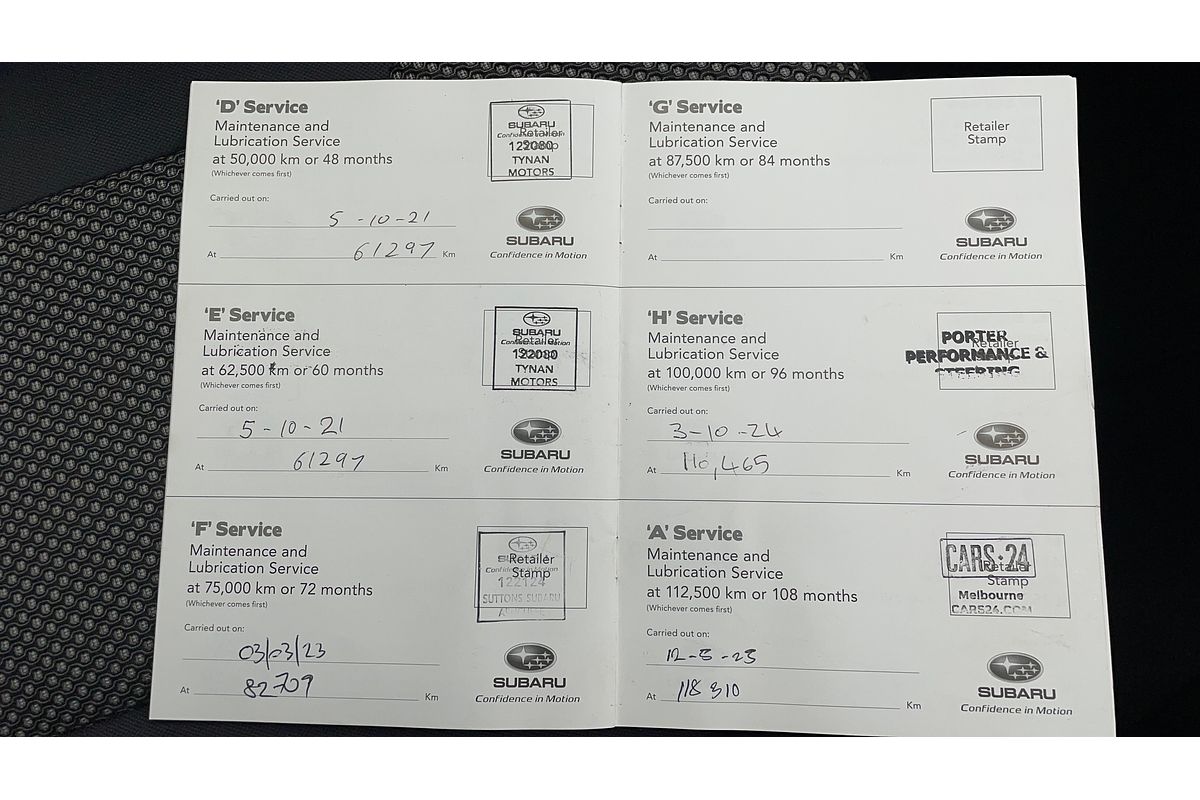 'D' Service
Maintenance and
Lubrication Service
at 50,000 km or 48 months
(Whichever comes first)
Carried out on:
5-10-21
At 61297 Km
Retailer
Stamp
SUBARU
Confidence in Motion
122080
TYNAN
MOTORS
SUBARU
Confidence in Motion
'E' Service
Maintenance and
Lubrication Service
at 62,500 km or 60 months
(Whichever comes first)
Carried out on:
5-10-21
At 61297 Km
Retailer
Stamp
SUBARU
Confidence in Motion
122080
TYNAN
MOTORS
SUBARU
Confidence in Motion
'F' Service
Maintenance and
Lubrication Service
at 75,000 km or 72 months
(Whichever comes first)
Carried out on:
03/03/23
At 82709 Km
Retailer
Stamp
122124
SUTTONS SUBARU
SUBARU
Confidence in Motion
'G' Service
Maintenance and
Lubrication Service
at 87,500 km or 84 months
(Whichever comes first)
Carried out on:
At Km
Retailer
Stamp
SUBARU
Confidence in Motion
'H' Service
Maintenance and
Lubrication Service
at 100,000 km or 96 months
(Whichever comes first)
Carried out on:
3-10-24
At 110,465 Km
Retailer
PORTER
PERFORMANCE &
STEERING
SUBARU
Confidence in Motion
'A' Service
Maintenance and
Lubrication Service
at 112,500 km or 108 months
(Whichever comes first)
Carried out on:
12-5-25
At 118 310 Km
Retailer
Stamp
CARS·24
Melbourne
CARS24.COM
SUBARU
Confidence in Motion